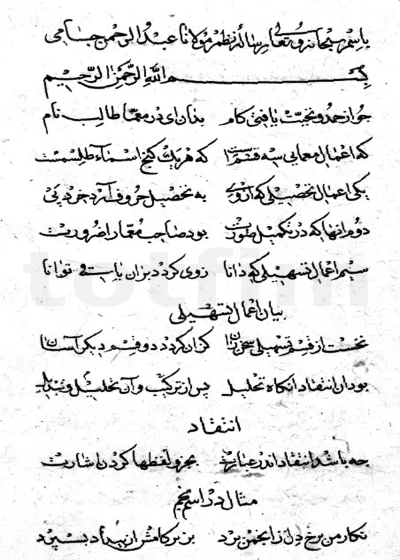 باسمه سبحانه و تعالی رساله نظم مولانا عبدالرحمن جامی
بسم الله الرحمن الرحیم
چو از حمد و تحیت یافتی کام بدان ای در معما طالب نام
که اعمال معمایی سه قسمست که هر یک گنج اسما را طلسمست
یکی اعمال تحصیلی که از وی به تحصیل حروف آرد خرد پی
دوم آنها که در تکمیل صورت بود صاحب معما را ضرورت
سیم اعمال تسهیلی که دانا ز وی گردد بران یاست توانا
بیان اعمال تسهیلی
نخست از قسم تسهیلی سخن ران کزان گردد دو قسم دیگر آسان
بود آن انتقاد آنگاه تحلیل پس از ترکیب و آن تحلیل و تبدیل
انتقاد
چه باشد انتقاد اندر عبارت بجزو لفظها کردن اشارت
مثال در اسم نجم
نگار من رخ دل ز انجمن برد
totfim